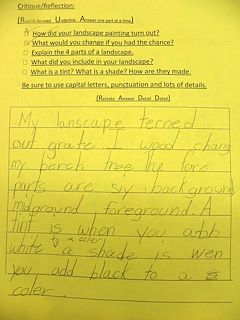 Critique/Reflection:
(Read is he read Underline Answer one part at a time)
How did your landscape painting turn out?
What would you change if you had the chance?
Explain the 4 parts of a landscape.
What did you include in your landscape?
What is a tint? What is a shade? How are they made.
Be sure to use capital letters, punctuation and lots of details.
(Restate Answer Detail Detail)
My lanscape terned
out grate. I wood chang
my perch tree the fore
parts are sky background
midground foreground. A
tint is when you add
white to a coler a shade is wen
you add black to a
coler.